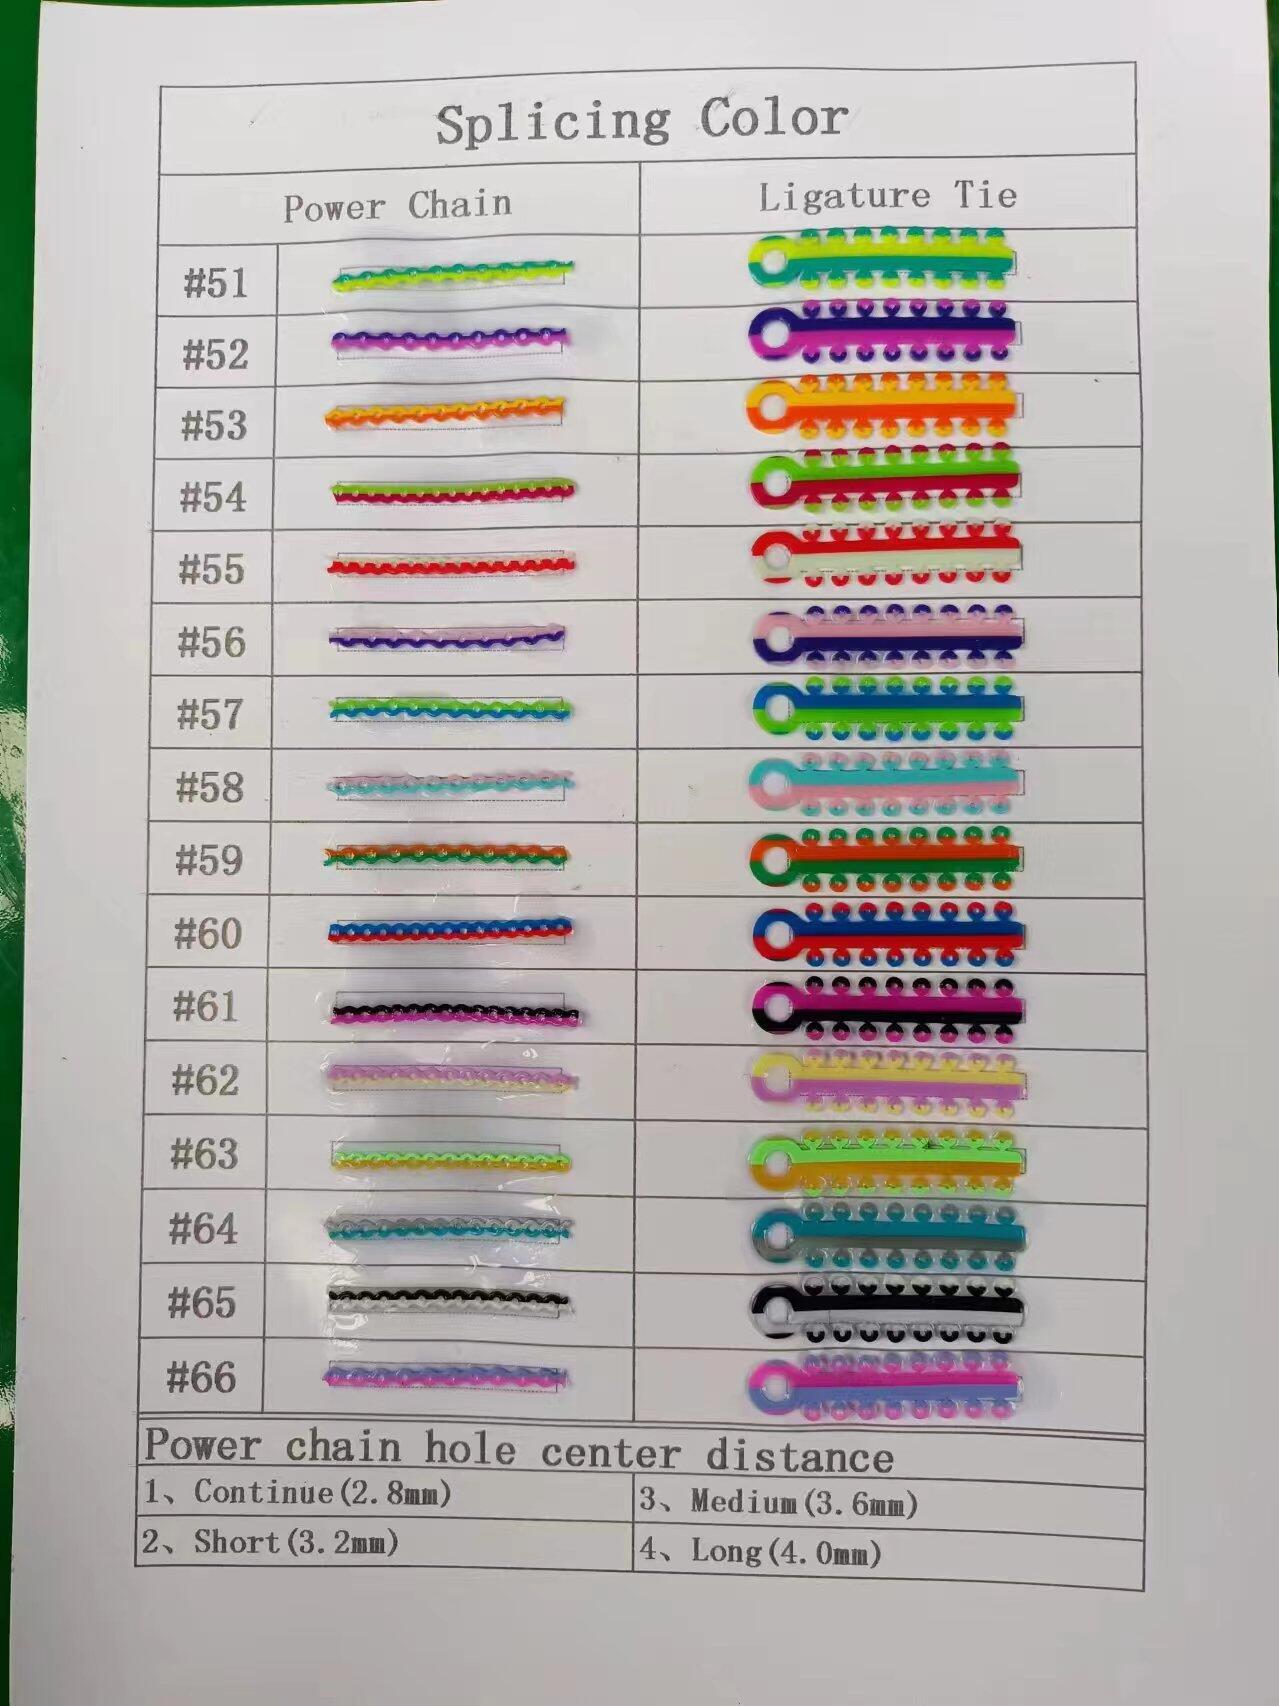 Splicing Color
Power Chain
Ligature Tie
#51
#52
#53
#54
#55
#56
#57
#58
#59
#60
#61
#62
#63
#64
#65
#66
Power chain hole center distance
1、Continue(2.8mm)
3、Medium(3.6mm)
2、Short(3.2mm)
4、Long(4.0mm)